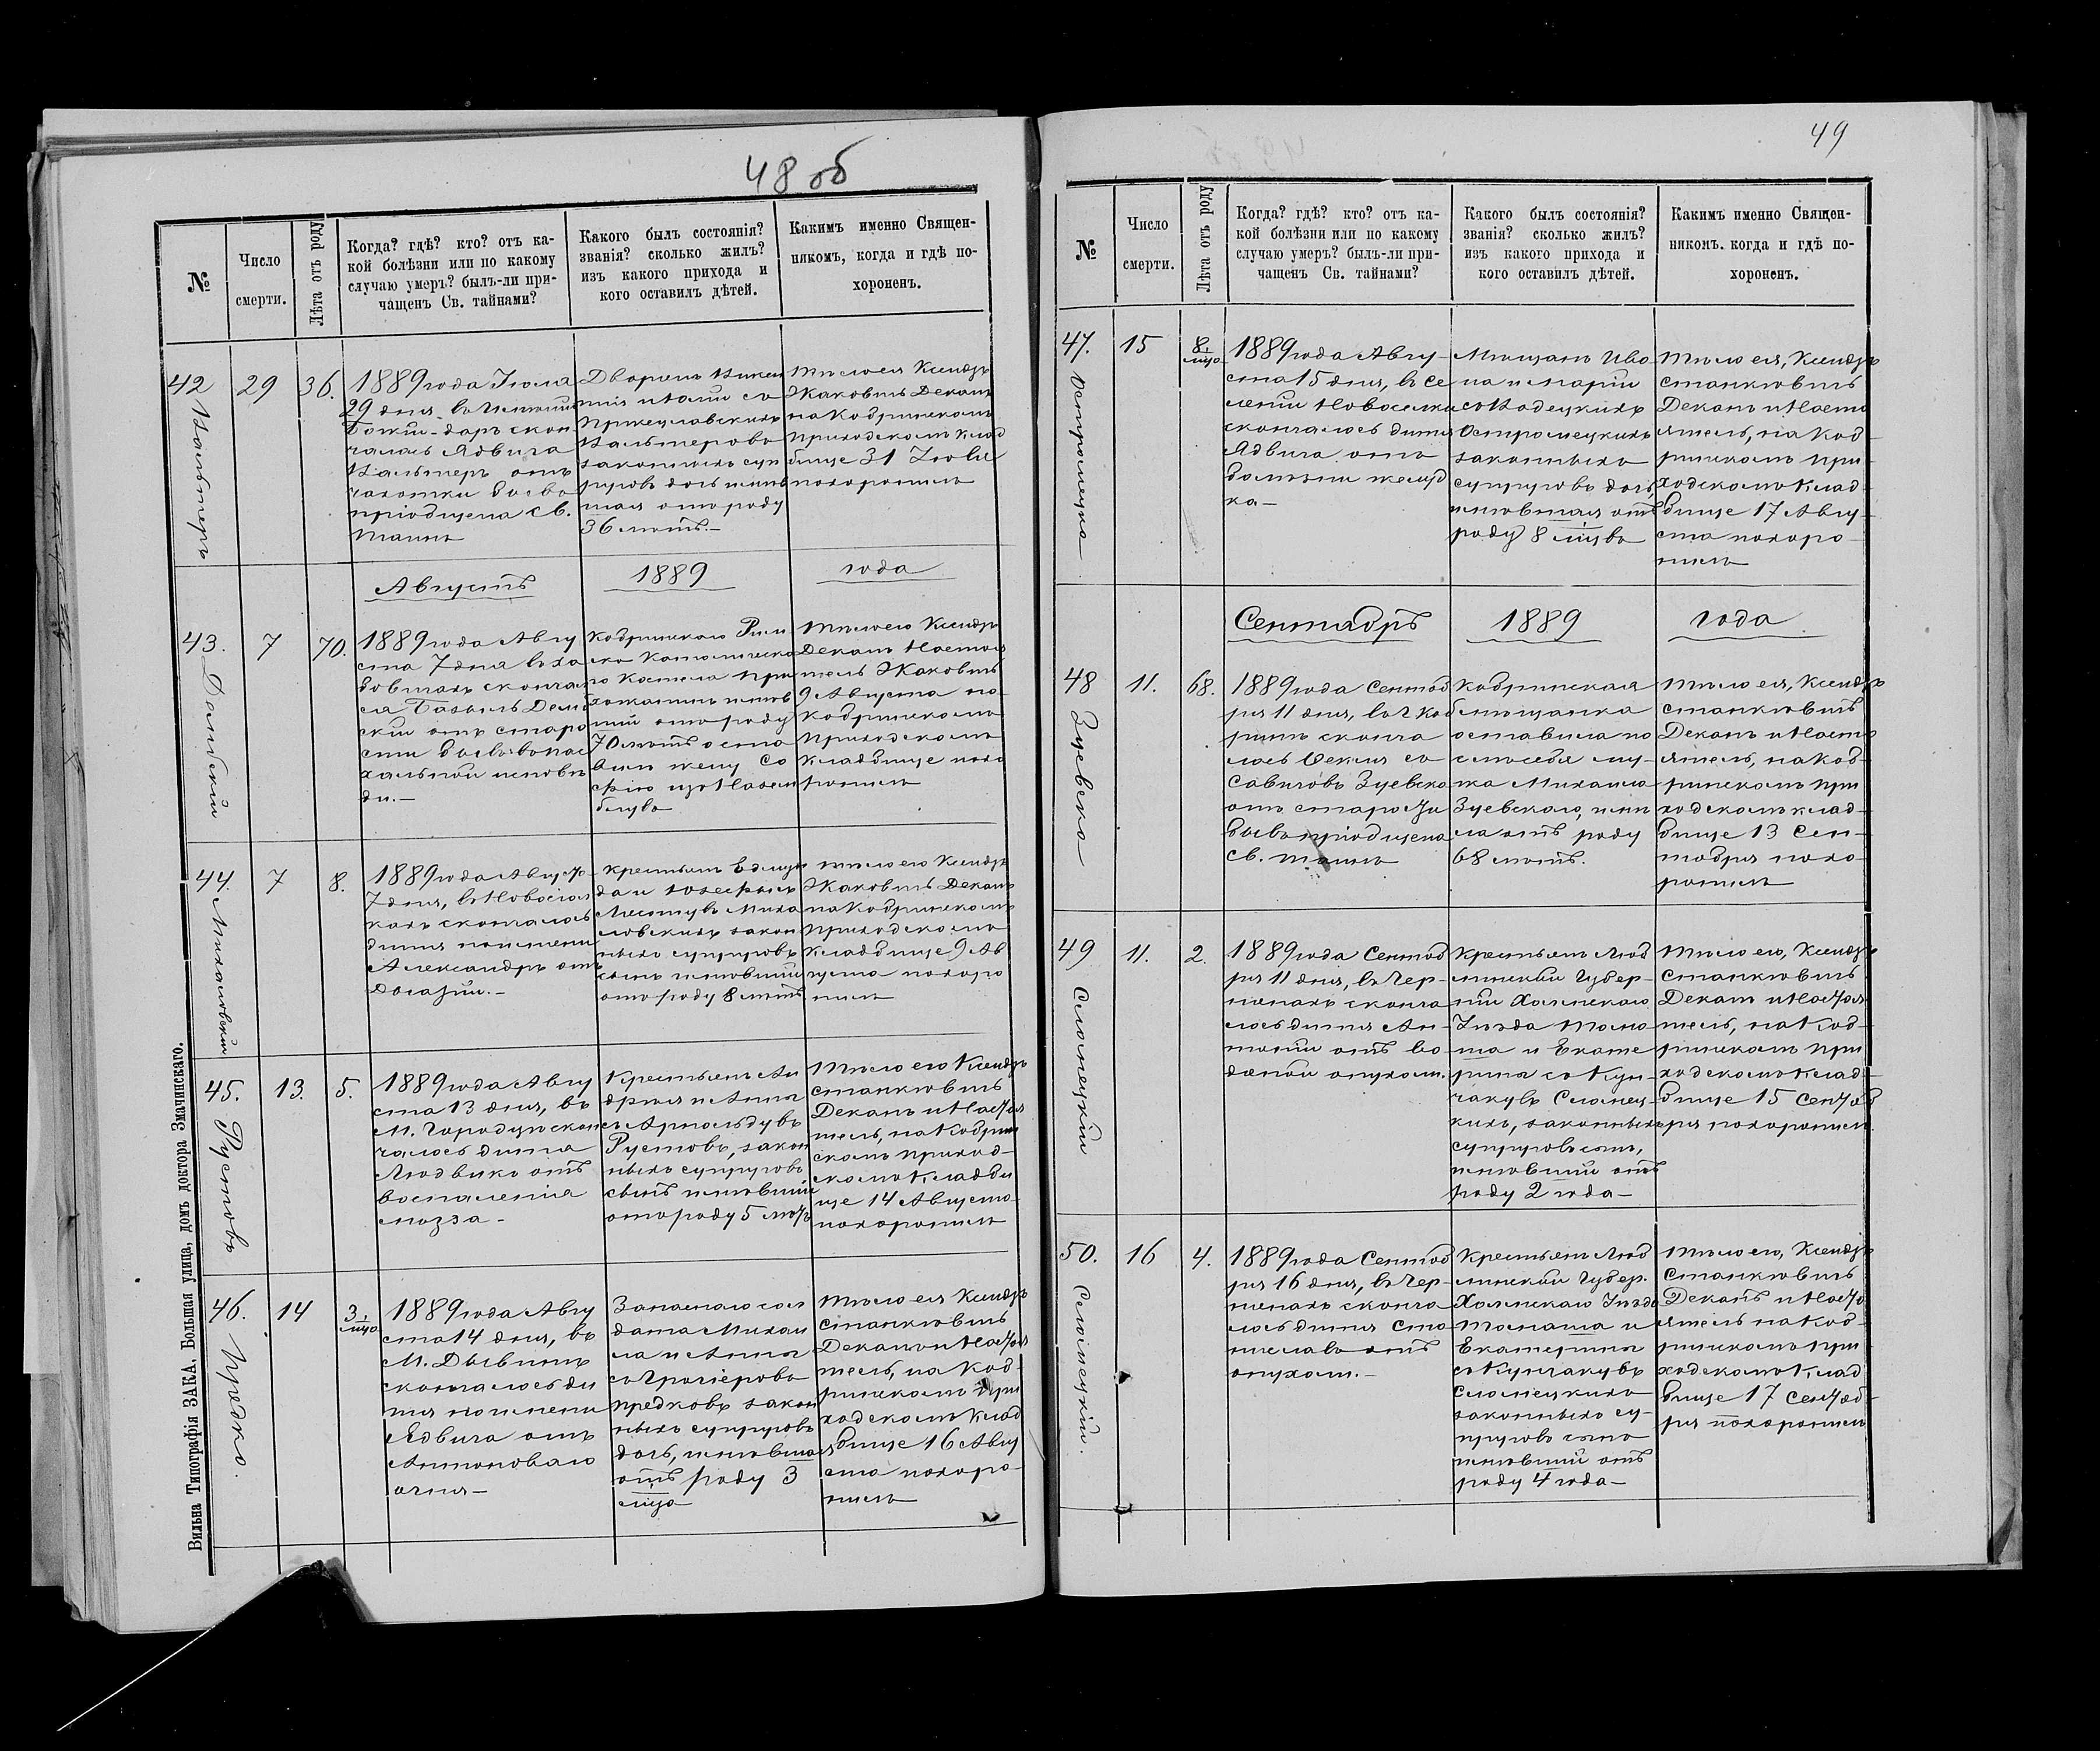 48 об
№
Число
смерти.
Лѣта отъ роду
Когда? гдѣ? кто? отъ ка-
кой болѣзни или по какому
случаю умеръ? былъ-ли при-
чащенъ Св. тайнами?
Какого былъ состоянія?
званія? сколько жилъ?
изъ какого прихода и
кого оставилъ дѣтей.
Какимъ именно Священ-
никомъ, когда и гдѣ по-
хороненъ.
42
Вальтеръ
29
36.
1889 года Іюля
29 дня въ имѣніи
Божій-даръ скон
чалась Ядвига
Вальтеръ отъ
чахотки бывъ
пріобщена Св.
Таинъ
Дворянъ
Вальтеровъ
законныхъ суп
руговъ дочь имѣв
шая отъ роду
36 лѣтъ.-
Тѣло ея Ксендзъ
Жаковичъ Деканъ
на Кобринскомъ
приходскомъ клад
бищѣ 31 Іюля
похоронилъ
Августъ
1889
года
43.
Домбскій
7
70.
1889 года Авгу
ста 7 дня
скончал
ся Базыль Домб
скій отъ старо
сти бывъ
исповѣ
ди.-
Кобринскаго Рим
ско Католическа
го Костела при
хожанинъ имѣв
шій отъ роду
70 лѣтъ оста
вилъ жену Со
фію
Тѣло его Ксендзъ
Деканъ Настоя
тель Жаковичъ
9 Августа на
Кобринскомъ
приходскомъ
кладбищѣ похо
ронилъ
44.
Михаловскій
7
8.
1889 года Августа
7 дня, въ Новосіол
кахъ скончалось
дитя по имени
Александръ отъ
Крестьянъ Едмун
да и Юзефы съ
Миха
ловскихъ закон
ныхъ супруговъ
сынъ имѣвшій
отъ роду 8 лѣтъ
тѣло его Ксендзъ
Жаковичъ Деканъ
на Кобринскомъ
приходскомъ
кладбищѣ 9 Ав
густа похоро
нилъ
45.
Рустовъ
13.
5.
1889 года Авгу
ста 13 дня, въ
М. Городцѣ скон
чалось дитя
Людвикъ отъ
воспаленія
мозга -
Крестьянъ Ан
дрея и Анны
съ Арнольдувъ
Рустовъ, закон
ныхъ супруговъ
сынъ имѣвшій
отъ роду 5 лѣтъ
Тѣло его Ксендзъ
Станкевичъ
Деканъ и Настоя
тель, на Кобрин
скомъ приход-
скомъ кладби
щѣ 14 Августа
похоронилъ
46.
14
3.
мѣс
1889 года Авгу
ста 14 дня, въ
М. Дывинѣ
скончалось ди
тя по имени
Ядвига отъ
Антоноваго
огня -
Запаснаго сол
дата Михаи
ла и Анны
законн
ныхъ супруговъ
дочь, имѣвшая
отъ роду 3
мѣс
Тѣло ея Ксендзъ
Станкевичъ
Деканъ и Настоя
тель, на Коб-
ринскомъ при
ходскомъ клад
бищѣ 16 Авгу
ста похоро-
нилъ
Вильна Типографія ЗАКА. Большая улица, домъ доктора Змачинскаго.
49
№
Число
смерти.
Лѣта отъ роду
Когда? гдѣ? кто? отъ ка-
кой болѣзни или по какому
случаю умеръ? былъ-ли при-
чащенъ Св. тайнами?
Какого былъ состоянія?
званія? сколько жилъ?
изъ какого прихода и
кого оставилъ дѣтей.
Какимъ именно Священ-
никомъ. когда и гдѣ по-
хороненъ.
47.
Остромецка
15
8.
мѣс
1889 года Авгу-
ста 15 дня, въ се
леніи Новоселки
скончалось дитя
Ядвига отъ
болѣзни желуд
ка -
Мѣщанъ Ива
на и Маріи
съ Кодецкихъ
Остромецкихъ
законныхъ
супруговъ дочь
имѣвшая отъ
роду 8 мѣс
Тѣло ея, Ксендзъ
Станкевичъ
Деканъ и Насто
ятель, на Коб-
ринскомъ при-
ходскомъ клад-
бищѣ 17 Авгу-
ста похоро-
нилъ
Сентябрь
1889
года
48
Зуевска
11.
68.
1889 года Сентяб
ря 11 дня, въ г. Коб
ринѣ сконча
лась Текля съ
Савичовъ Зуевска
отъ старости
бывъ пріобщена
Св. таинъ
Кобринская
мѣщанка
оставила по
слѣ себя му-
жа Михаила
Зуевскаго, имѣ
ла отъ роду
68 лѣтъ.
Тѣло ея, Ксендзъ
Станкевичъ
Деканъ и Насто
ятель, на Коб-
ринскомъ при
ходскомъ клад-
бищѣ 13 Сен-
тября похо-
ронилъ
49
Сломецкій
11.
2.
1889 года Сентяб
ря 11 дня, въ Чер-
нянахъ сконча
лось дитя Ан-
тоній отъ во
дяной опухоли.
Крестьянъ Люб
линской Губер-
ніи Холмскаго
Уѣзда Тома
ша и Екате
рины съ Кун-
чакувъ Сломец-
кихъ, законныхъ
супруговъ сынъ,
имѣвшій отъ
роду 2 года -
Тѣло его, Ксендзъ
Станкевичъ
Деканъ и Настоя
тель, на Коб-
ринскомъ при
ходскомъ клад-
бищѣ 15 Сентяб
ря похоронилъ
50.
Сломецкій.
16
4.
1889 года Сентяб
ря 16 дня, въ Чер-
нянахъ сконча
лось дитя Ста
ниславъ отъ
опухоли. -
Крестьянъ Люб
линской Губер.
Холмскаго Уѣзда
Томаша и
Екатерины
съ Кунчакувъ
Сломецкихъ
законныхъ су-
пруговъ сынъ
имѣвшій отъ
роду 4 года -
Тѣло его, Ксендзъ
Станкевичъ
Деканъ и Насто
ятель на Коб-
ринскомъ при
ходскомъ клад
бищѣ 17 Сентяб-
ря похоронилъ